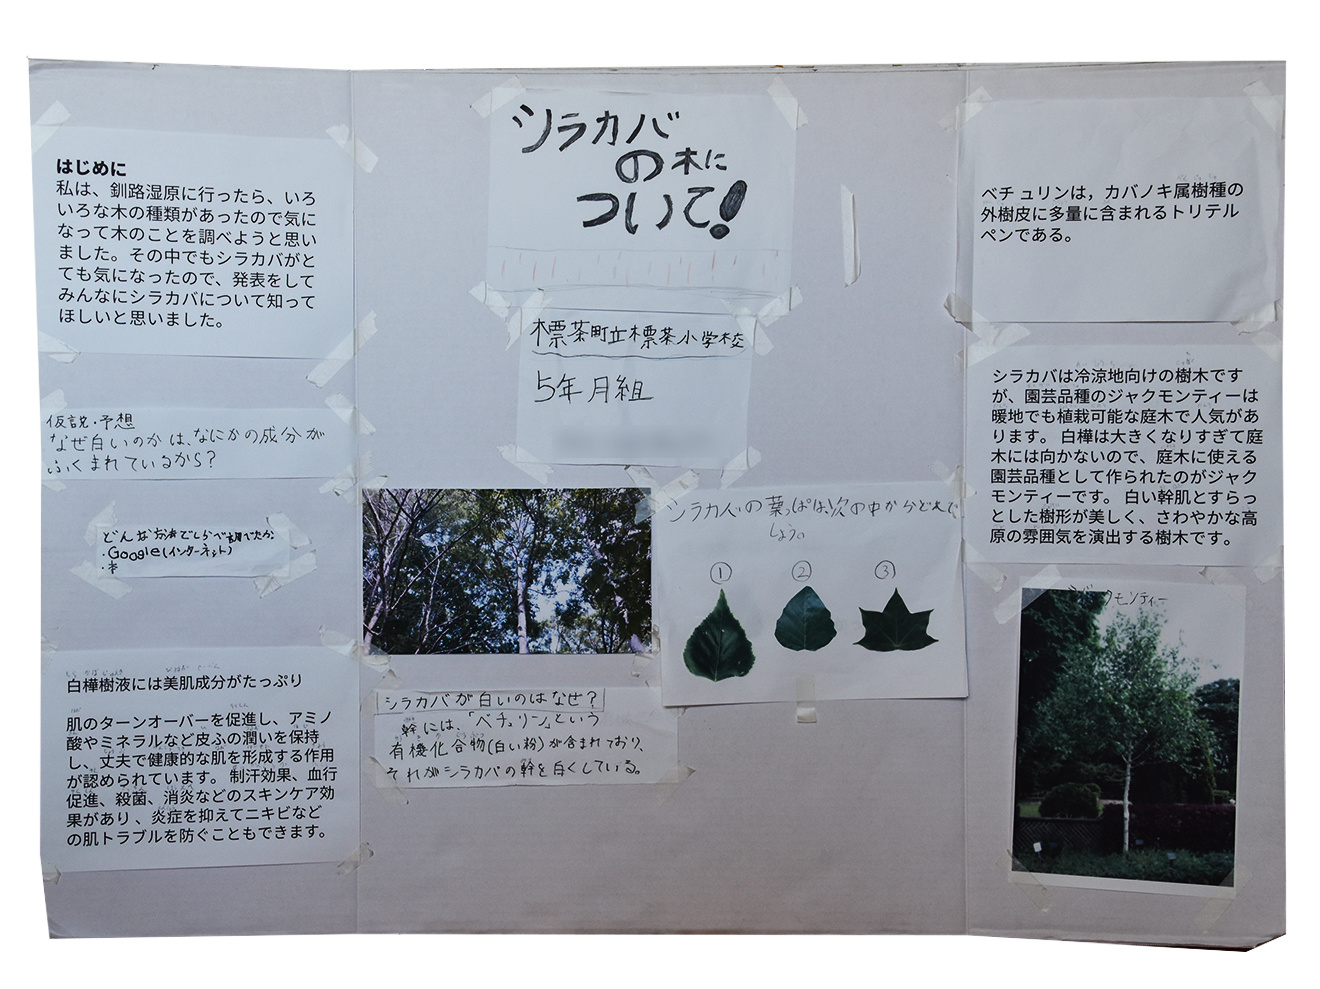 はじめに
私は、釧路湿原に行ったら、いろ
いろな木の種類があったので気に
なって木のことを調べようと思い
ました。その中でもシラカバがと
ても気になったので、発表をして
みんなにシラカバについて知って
ほしいと思いました。
仮説・予想
なぜ白いのかは、なにかの成分が
ふくまれているから?
どんなお
・Google(インターネット)
・本
白樺樹液には美肌成分がたっぷり
肌のターンオーバーを促進し、アミノ
酸やミネラルなど皮ふの潤いを保持
し、丈夫で健康的な肌を形成する作用
が認められています。 制汗効果、血行
促進、殺菌、消炎などのスキンケア効
果があり、炎症を抑えてニキビなど
の肌トラブルを防ぐこともできます。
シラカバ
の木に
ついて!
標茶町立標茶小学校
5年月組
シラカバの葉っぱは次の中からどれで
しょう。
① ② ③
シラカバが白いのはなぜ?
幹には、「ベチュリン」という
有機化合物(白い粉)が含まれており、
それがシラカバの幹を白くしている。
ベチュリンは，カバノキ属樹種の
外樹皮に多量に含まれるトリテル
ペンである。
シラカバは冷涼地向けの樹木です
が、園芸品種のジャクモンティーは
暖地でも植栽可能な庭木で人気があ
ります。 白樺は大きくなりすぎて庭
木には向かないので、庭木に使える
園芸品種として作られたのがジャク
モンティーです。 白い幹肌とすらっ
とした樹形が美しく、さわやかな高
原の雰囲気を演出する樹木です。
ジャクモンティー